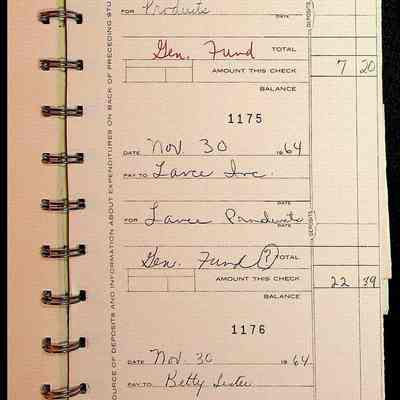 FOR Products
DATE
Gen. Fund TOTAL
AMOUNT THIS CHECK 7 20
BALANCE
1175
DATE Nov. 30 1964
PAY TO Lance Inc.
DATE
FOR Lance Products
DATE
Gen. Fund ? TOTAL
AMOUNT THIS CHECK 22 39
BALANCE
1176
DATE Nov. 30 1964
PAY TO Betty
OURCE OF DEPOSITS AND INFORMATION ABOUT EXPENDITURES ON BACK OF PRECEDING STU
DEPOSITS
DEPOSITS